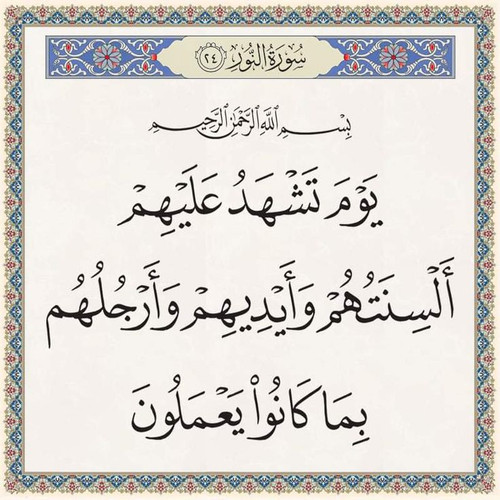 سُورَةُ النُّورِ ٢٤
بِسْمِ اللَّهِ الرَّحْمَٰنِ الرَّحِيمِ
يَوْمَ تَشْهَدُ عَلَيْهِمْ
أَلْسِنَتُهُمْ وَأَيْدِيهِمْ وَأَرْجُلُهُم
بِمَا كَانُوا۟ يَعْمَلُونَ